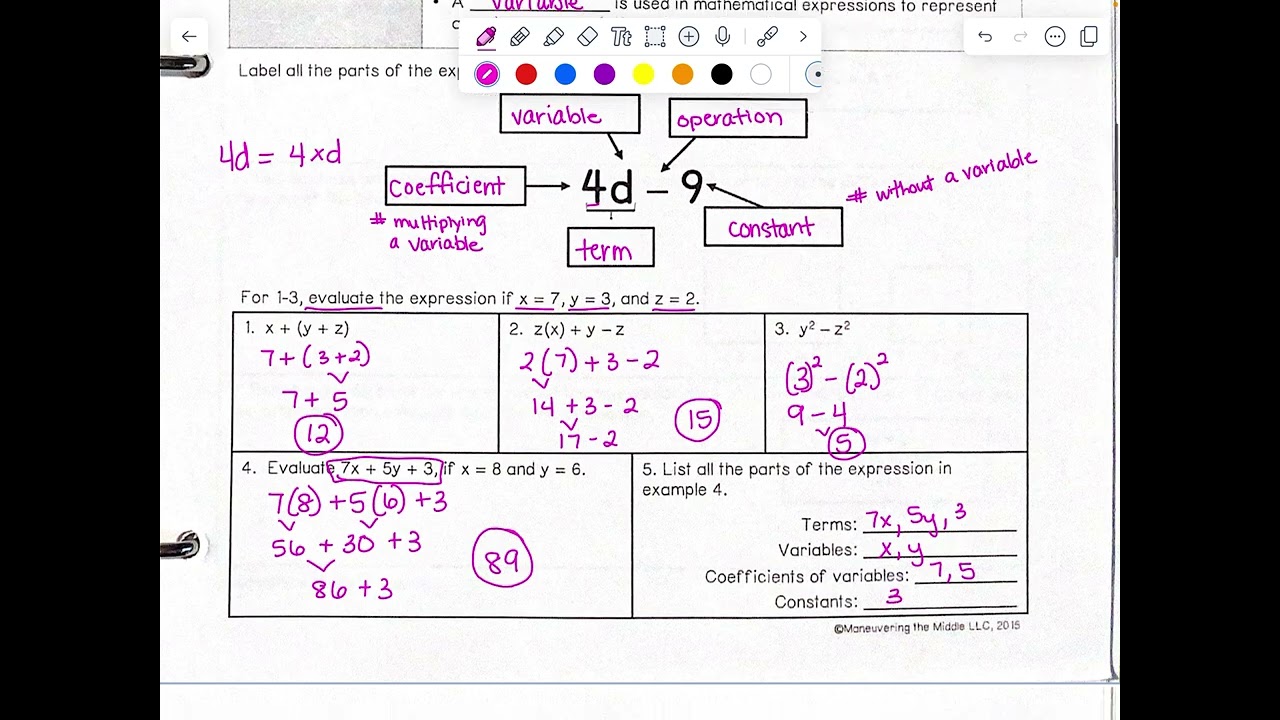 A variable is used in mathematical expressions to represent
Tt
Label all the parts of the exp
variable
operation
4d = 4×d
coefficient
4d – 9
# without a variable
# multiplying
a variable
constant
term
For 1-3, evaluate the expression if x = 7, y = 3, and z = 2.
1. x + (y + z)
7+(3+2)
7+ 5
12
2. z(x) + y – z
2(7)+3-2
14 +3- 2
17-2
15
3. y² – z²
(3)² - (2)²
9-4
5
4. Evaluate 7x + 5y + 3, if x = 8 and y = 6.
7(8) +5(6) +3
56 + 30 +3
86 +3
89
5. List all the parts of the expression in
example 4.
Terms: 7x, 5y, 3
Variables: x, y
Coefficients of variables: 7, 5
Constants: 3
©Maneuvering the Middle LLC, 2015